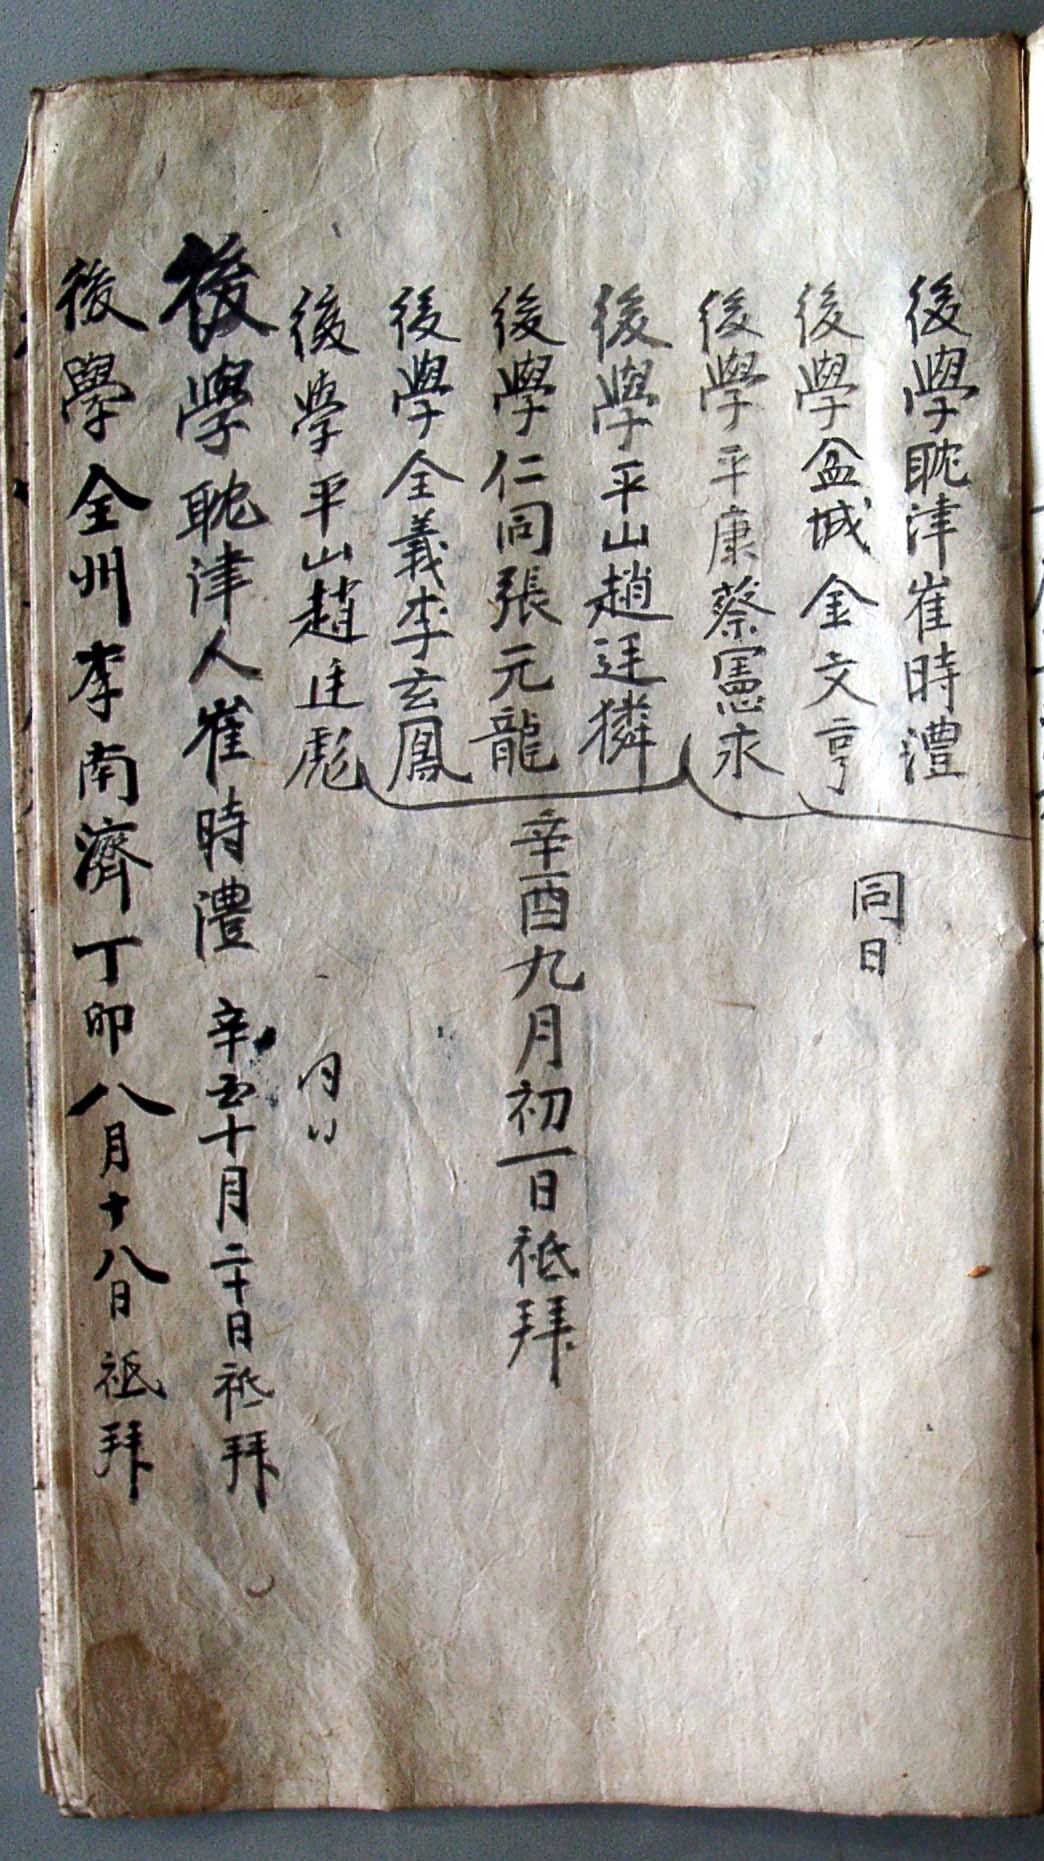 後學耽津崔時澧
後學盆城金文亨
同日
後學平康蔡憲永
後學平山趙廷獜
後學仁同張元龍
辛酉九月初一日祗拜
後學全義李玄鳳
後學平山趙廷彪
後學耽津人崔時澧 辛 十月二十日祗拜
後學全州李南濟丁卯八月十八日祗拜